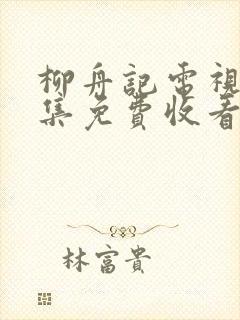 柳舟記電視
集免費收看
林富貴